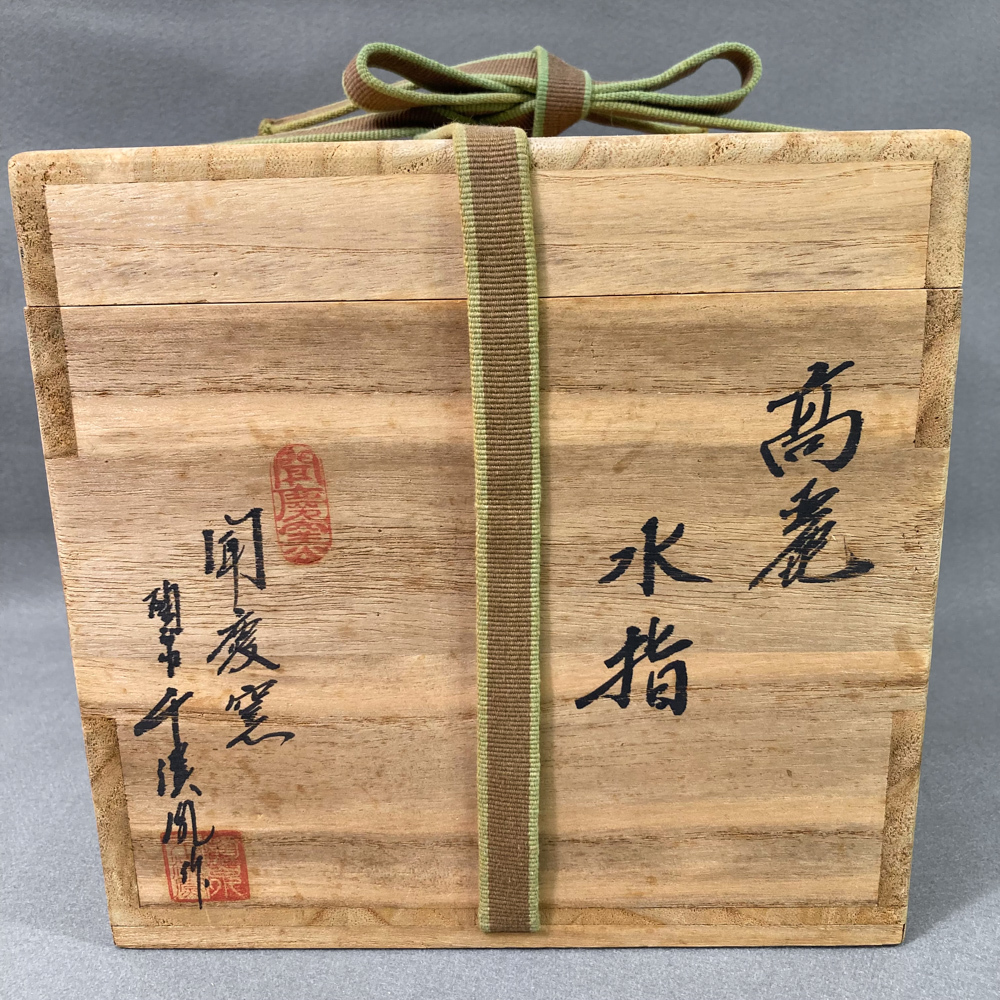 高麗
水指
聞慶窯
聞慶窯
陶泉千漢鳳作